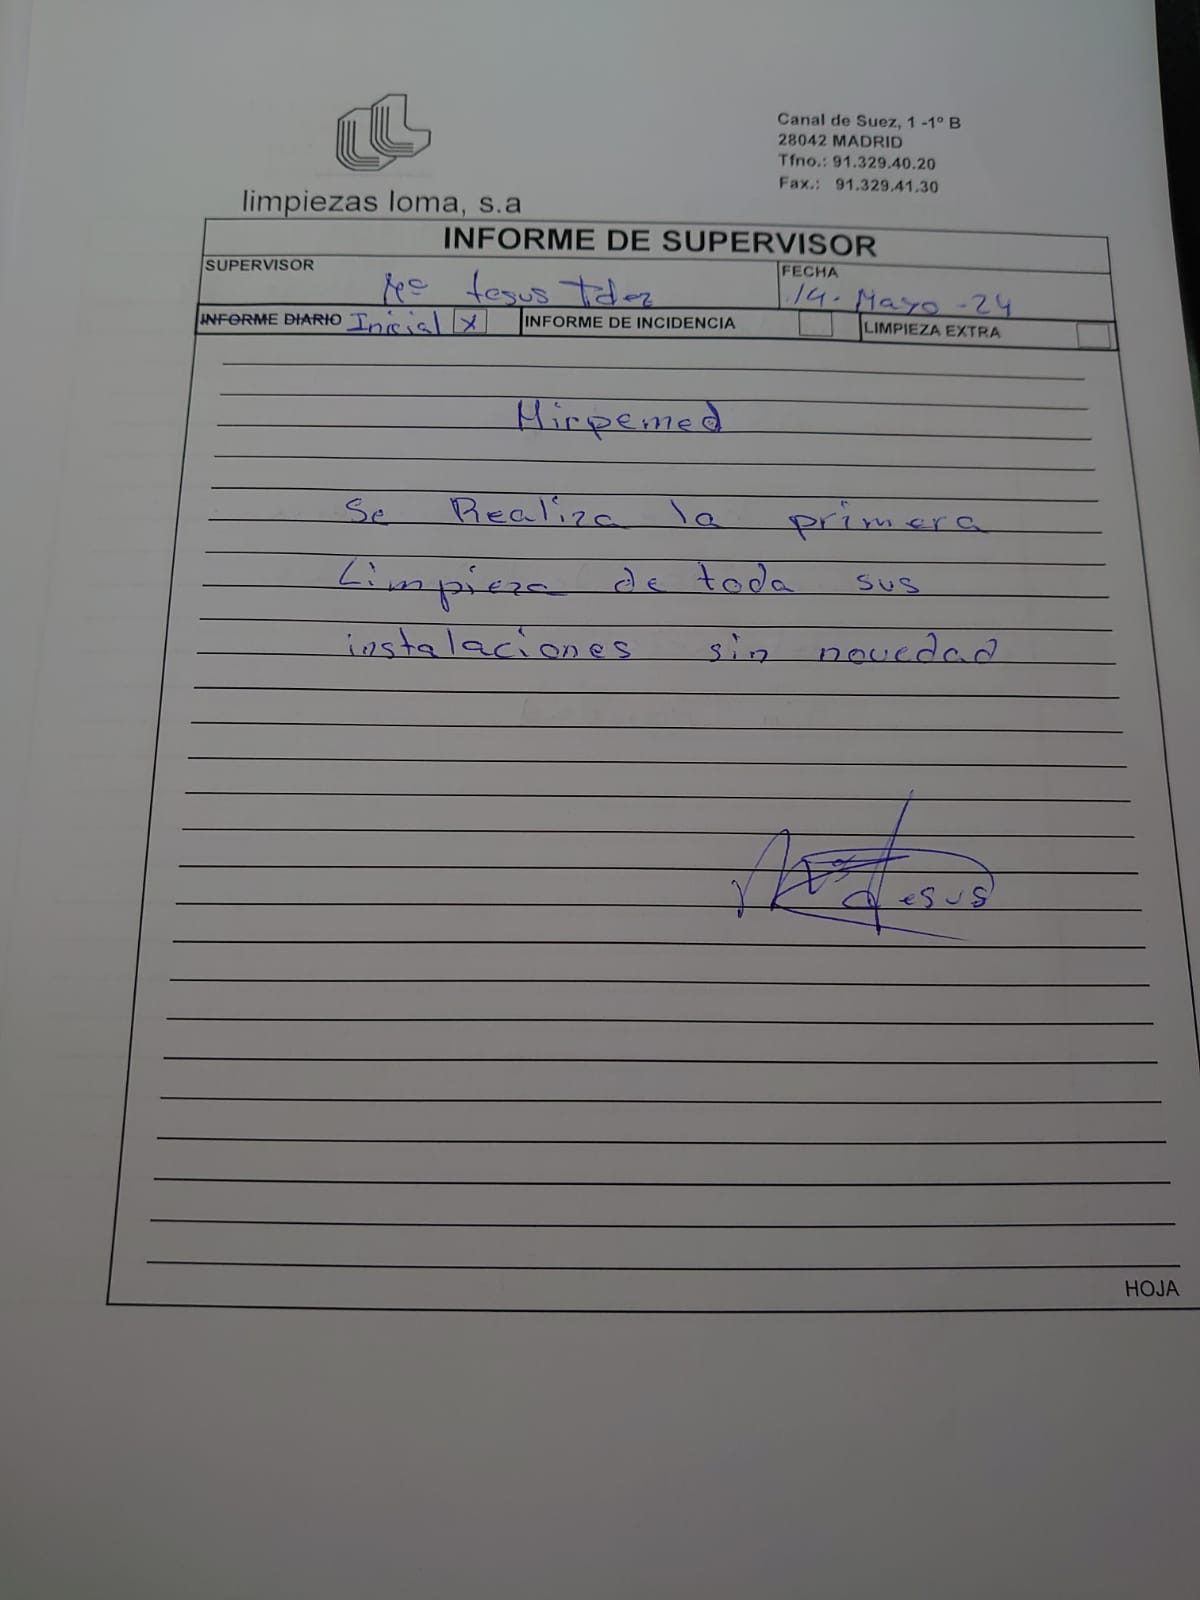 Canal de Suez, 1 -1º B
28042 MADRID
Tfno.: 91.329.40.20
Fax.: 91.329.41.30
limpiezas loma, s.a
INFORME DE SUPERVISOR
SUPERVISOR
Mª Jesus Fdez
FECHA
14. Mayo - 24
INFORME DIARIO Inicial X
INFORME DE INCIDENCIA
LIMPIEZA EXTRA
Hirpemed
Se Realiza la primera
Limpieza de toda sus
instalaciones sin novedad
Mª Jesus
HOJA